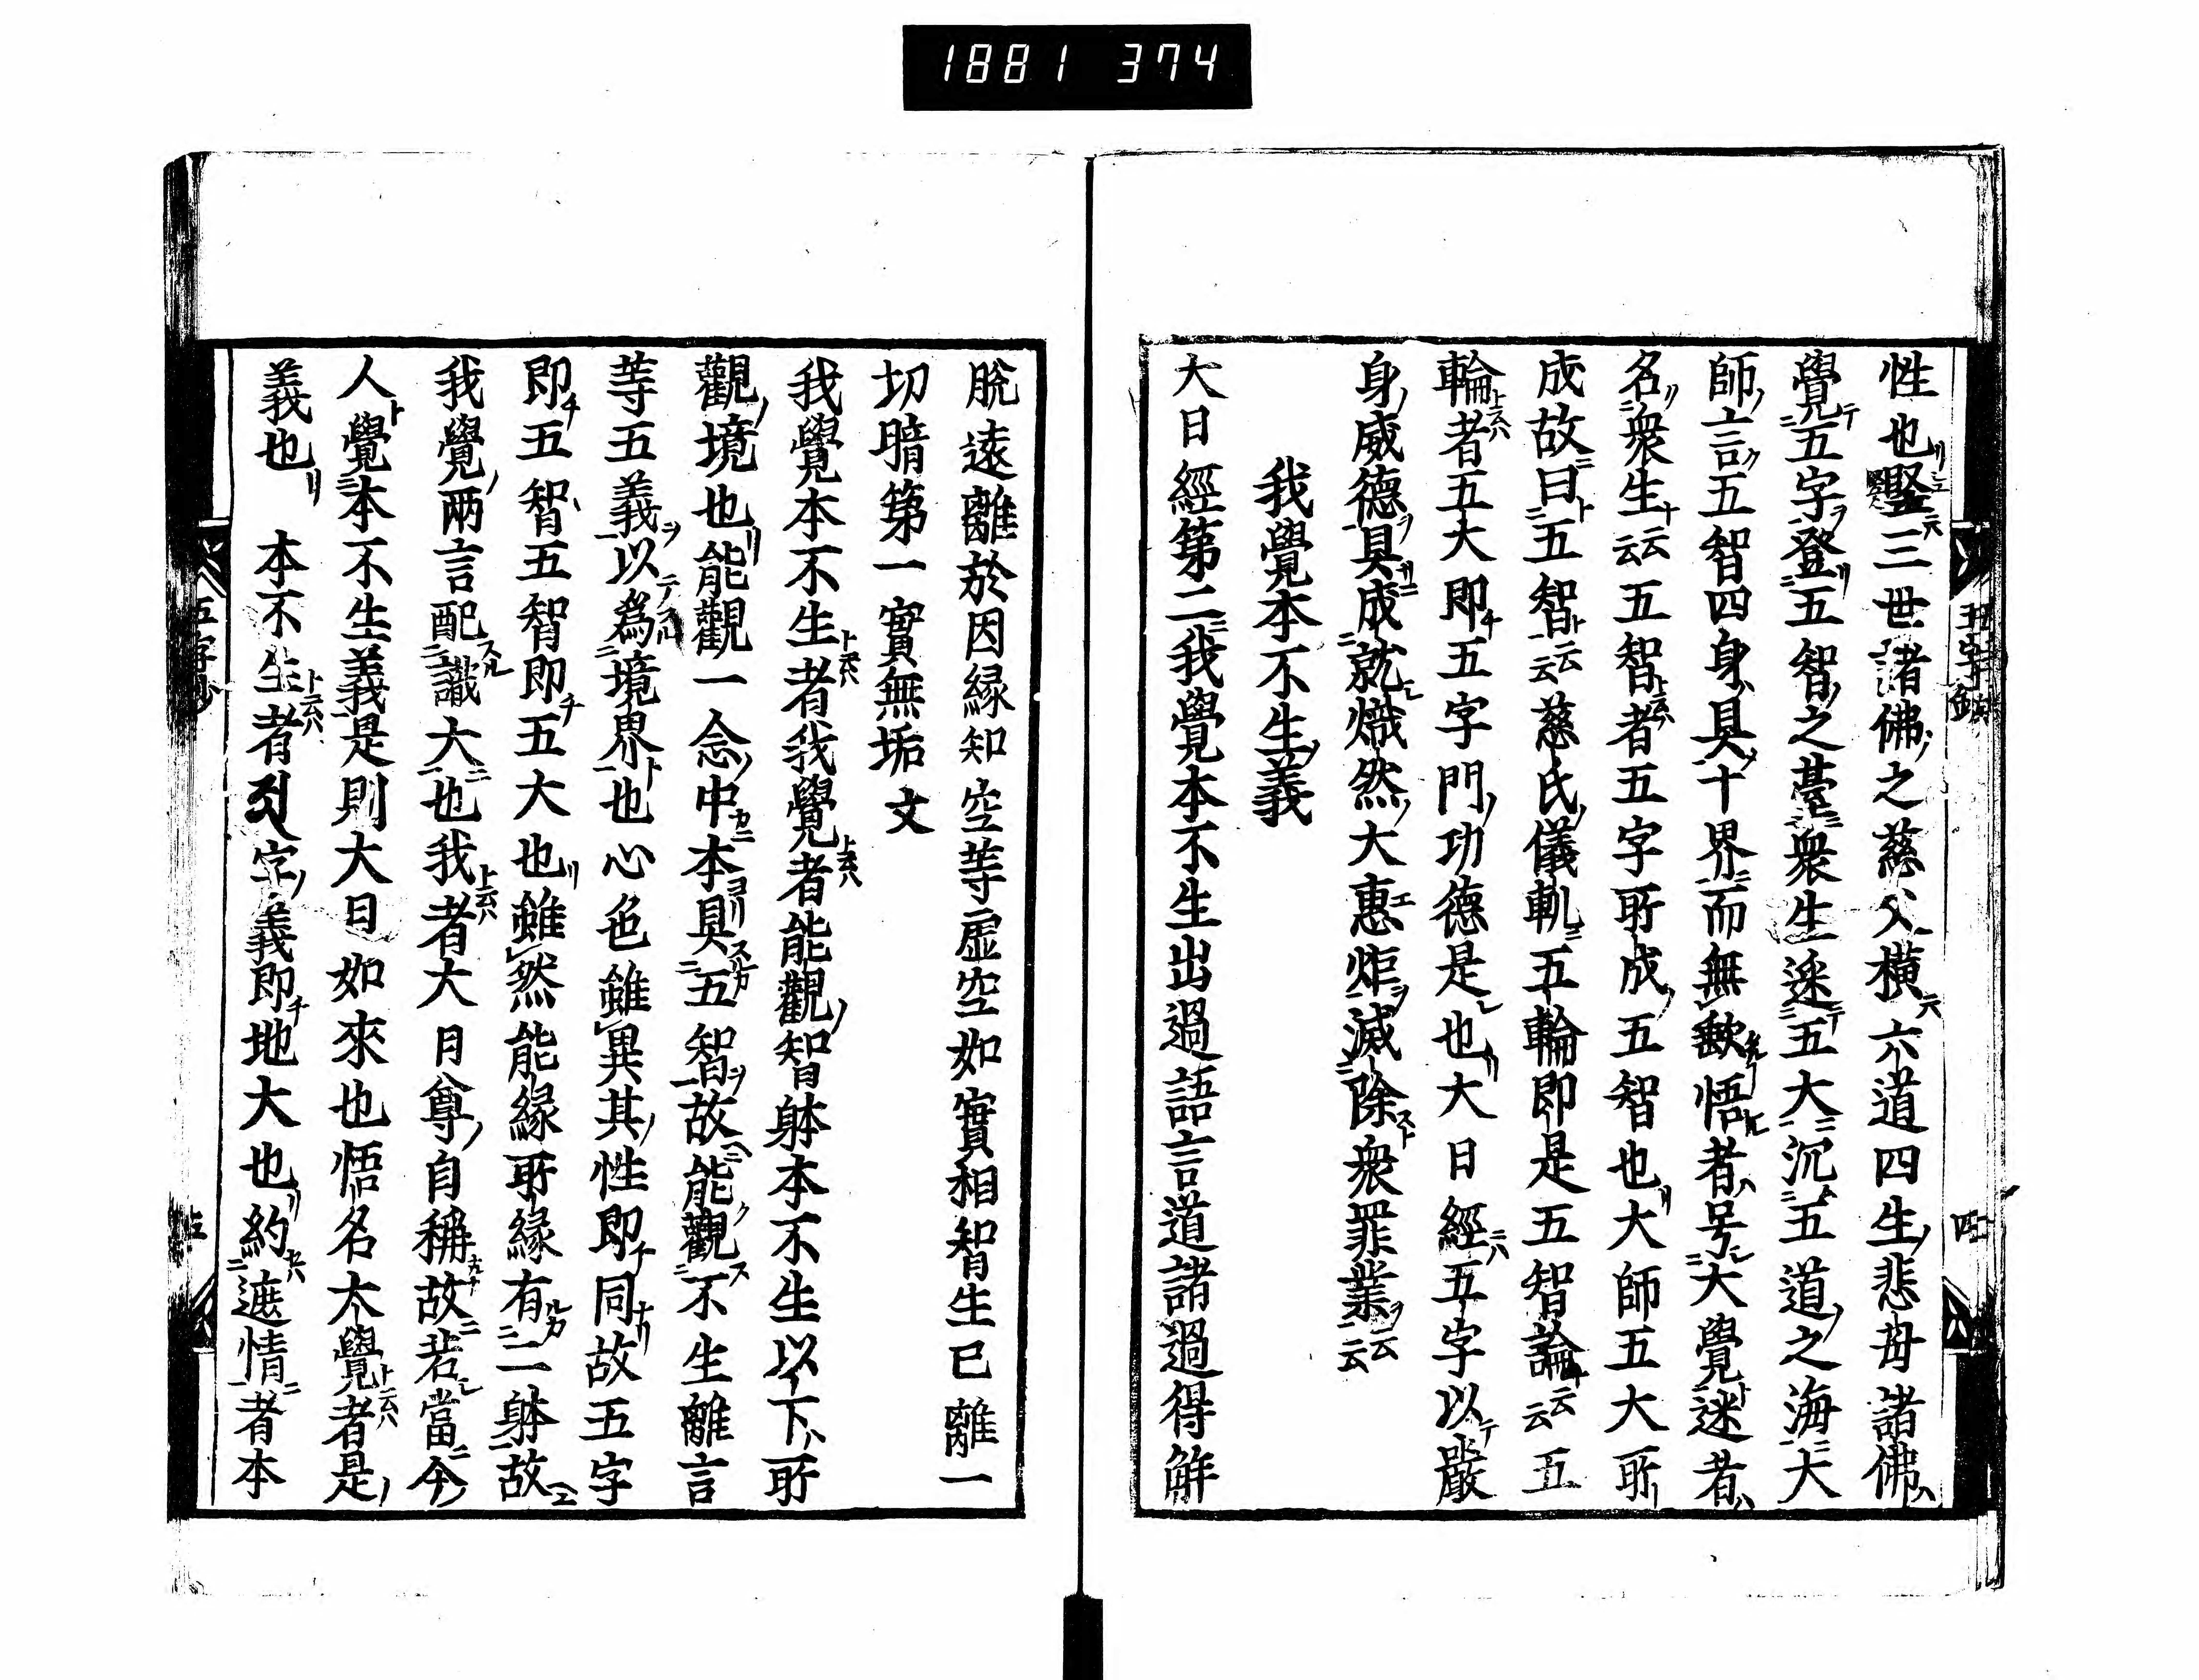 1881 374
性也竪三世諸佛之慈父橫六道四生悲母諸佛
覺五字登五智之臺衆生迷五大沉五道之海大
師言五智四身具十界而無歉悟者号大覺迷者
名衆生云云五智者五字所成五智也大師五大所
成故曰五智云云慈氏儀軌五輪即是五智論云云五
輪者五大即五字門功德是也大日經五字以嚴
身威德具成就熾然大惠炬滅除衆罪業云云
我覺本不生義
大日經第二我覺本不生出過語言道諸過得解
脫遠離於因緣知空等虛空如實相智生已離一
切暗第一實無垢文
我覺本不生者我覺者能觀智躰本不生以下所
觀境也能觀一念中本具五智故能觀不生離言
等五義以爲境界也心色雖異其性即同故五字
即五智五智即五大也雖然能緣所緣有二躰故
我覺兩言配識大也我者大日尊自稱故若當今
人覺本不生義是則大日如來也悟名大覺者是
義也　本不生者字義即地大也約遮情者本
五字鈔
四